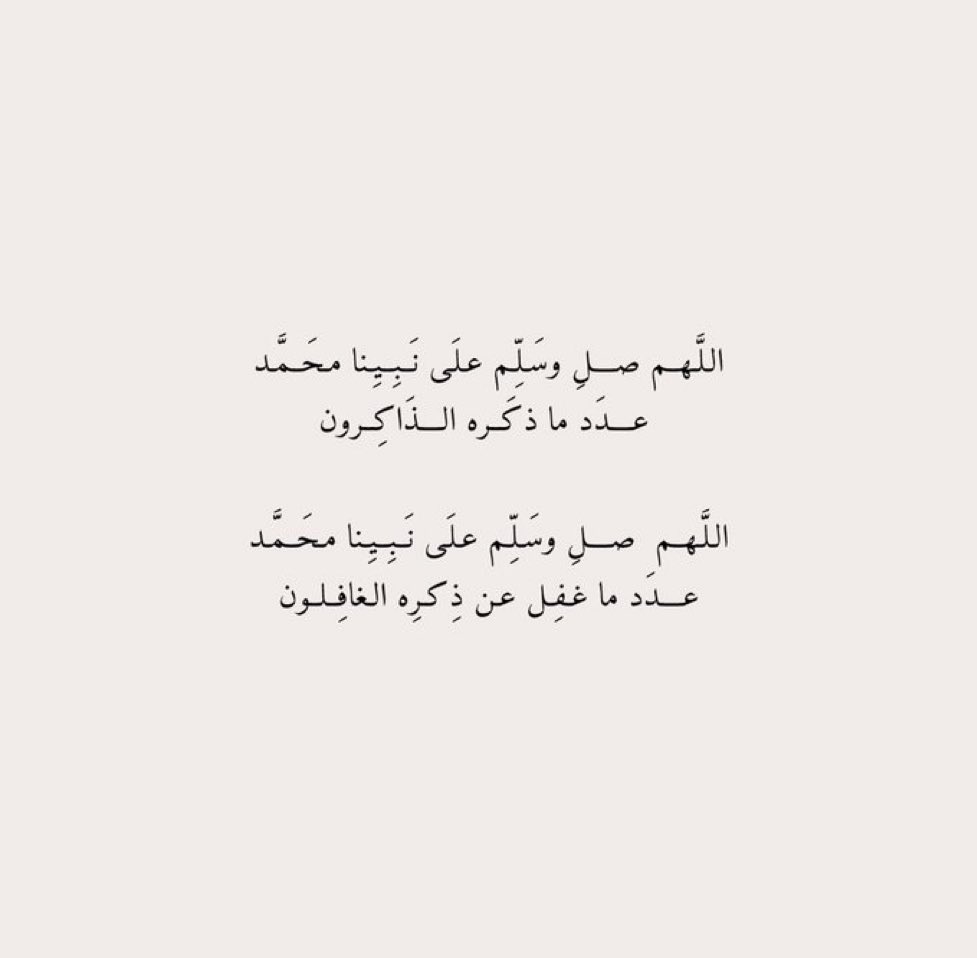 اللَّهـم صــلِ وسَلِّم علَى نَـبِـيِنا محَـمَّد
عــدَد ما ذكَـره الــذَاكِـرون
اللَّهـم صــلِ وسَلِّم علَى نَـبِـيِنا محَـمَّد
عــدَد ما غـفِـل عـن ذِكـرِه الـغافِـلـون